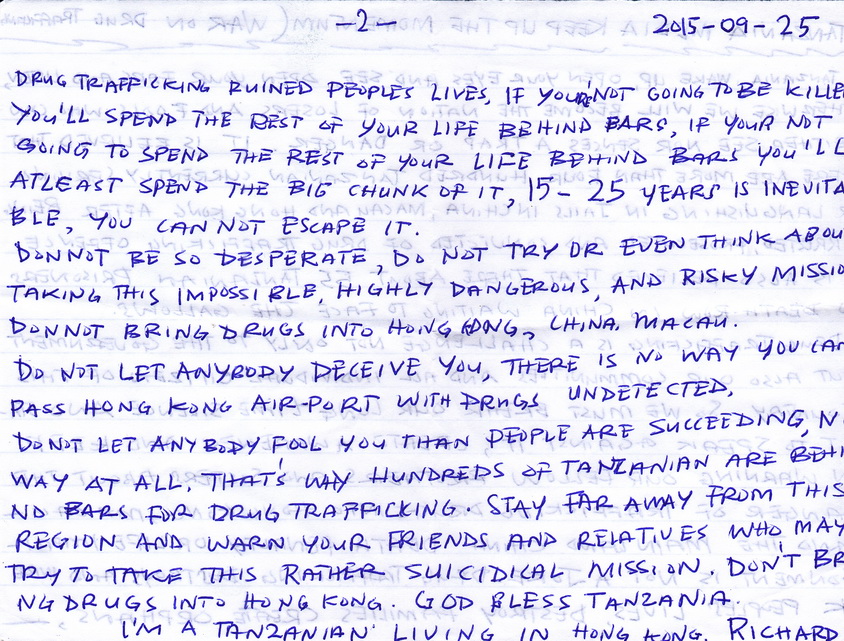 -2- 2015-09-25
DRUG TRAFFICKING RUINED PEOPLES LIVES, IF YOUR NOT GOING TO BE KILLE
YOU'LL SPEND THE REST OF YOUR LIFE BEHIND BARS, IF YOUR NOT
GOING TO SPEND THE REST OF YOUR LIFE BEHIND BARS YOU'LL
ATLEAST SPEND THE BIG CHUNK OF IT, 15-25 YEARS IS INEVITA
BLE, YOU CAN NOT ESCAPE IT.
DONNOT BE SO DESPERATE, DO NOT TRY OR EVEN THINK ABOU
TAKING THIS IMPOSSIBLE, HIGHLY DANGEROUS, AND RISKY MISSIO
DONNOT BRING DRUGS INTO HONG KONG, CHINA, MACAU.
DO NOT LET ANYBODY DECEIVE YOU, THERE IS NO WAY YOU CAN
PASS HONG KONG AIR-PORT WITH DRUGS UNDETECTED.
DONOT LET ANYBODY FOOL YOU THAN PEOPLE ARE SUCCEEDING, N
WAY AT ALL. THAT'S WHY HUNDREDS OF TANZANIAN ARE BEHI
ND BARS FOR DRUG TRAFFICKING. STAY FAR AWAY FROM THIS
REGION AND WARN YOUR FRIENDS AND RELATIVES WHO MAY
TRY TO TAKE THIS RATHER SUICIDICAL MISSION. DON'T BR
NG DRUGS INTO HONG KONG. GOD BLESS TANZANIA.
I'M A TANZANIAN LIVING IN HONG KONG. RICHARD